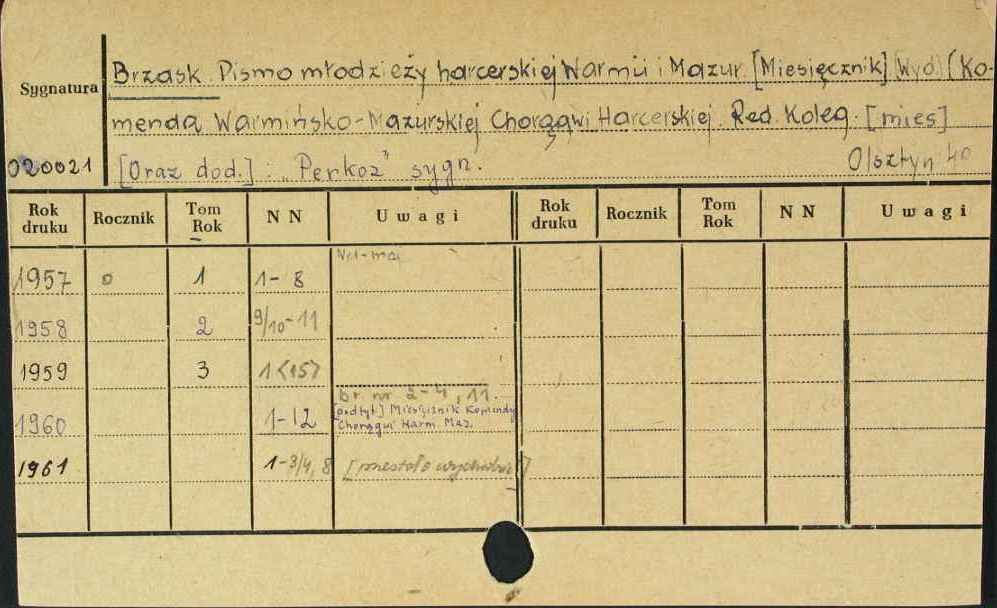 Sygnatura
020021
Brzask. Pismo młodzieży harcerskiej Warmii i Mazur. [Miesięcznik] (Wyd.) (Ko-
menda Warmińsko-Mazurskiej Chorągwi Harcerskiej. Red. Koleg. [mies]
[Oraz dod.]: „Perkoz" sygn. Olsztyn 40
Rok druku Rocznik Tom Rok NN Uwagi Rok druku Rocznik Tom Rok NN Uwagi
1957 0 1 1-8 Nr 1-maj
1958 2 9/10-11
1959 3 1<15>
br nr 2-4, 11.
1960 1-12 [podtyt.] Miesięcznik Komendy
Chorągwi Harm. Maz.
1961 1-3/4, 8 [przestało wychodzić]